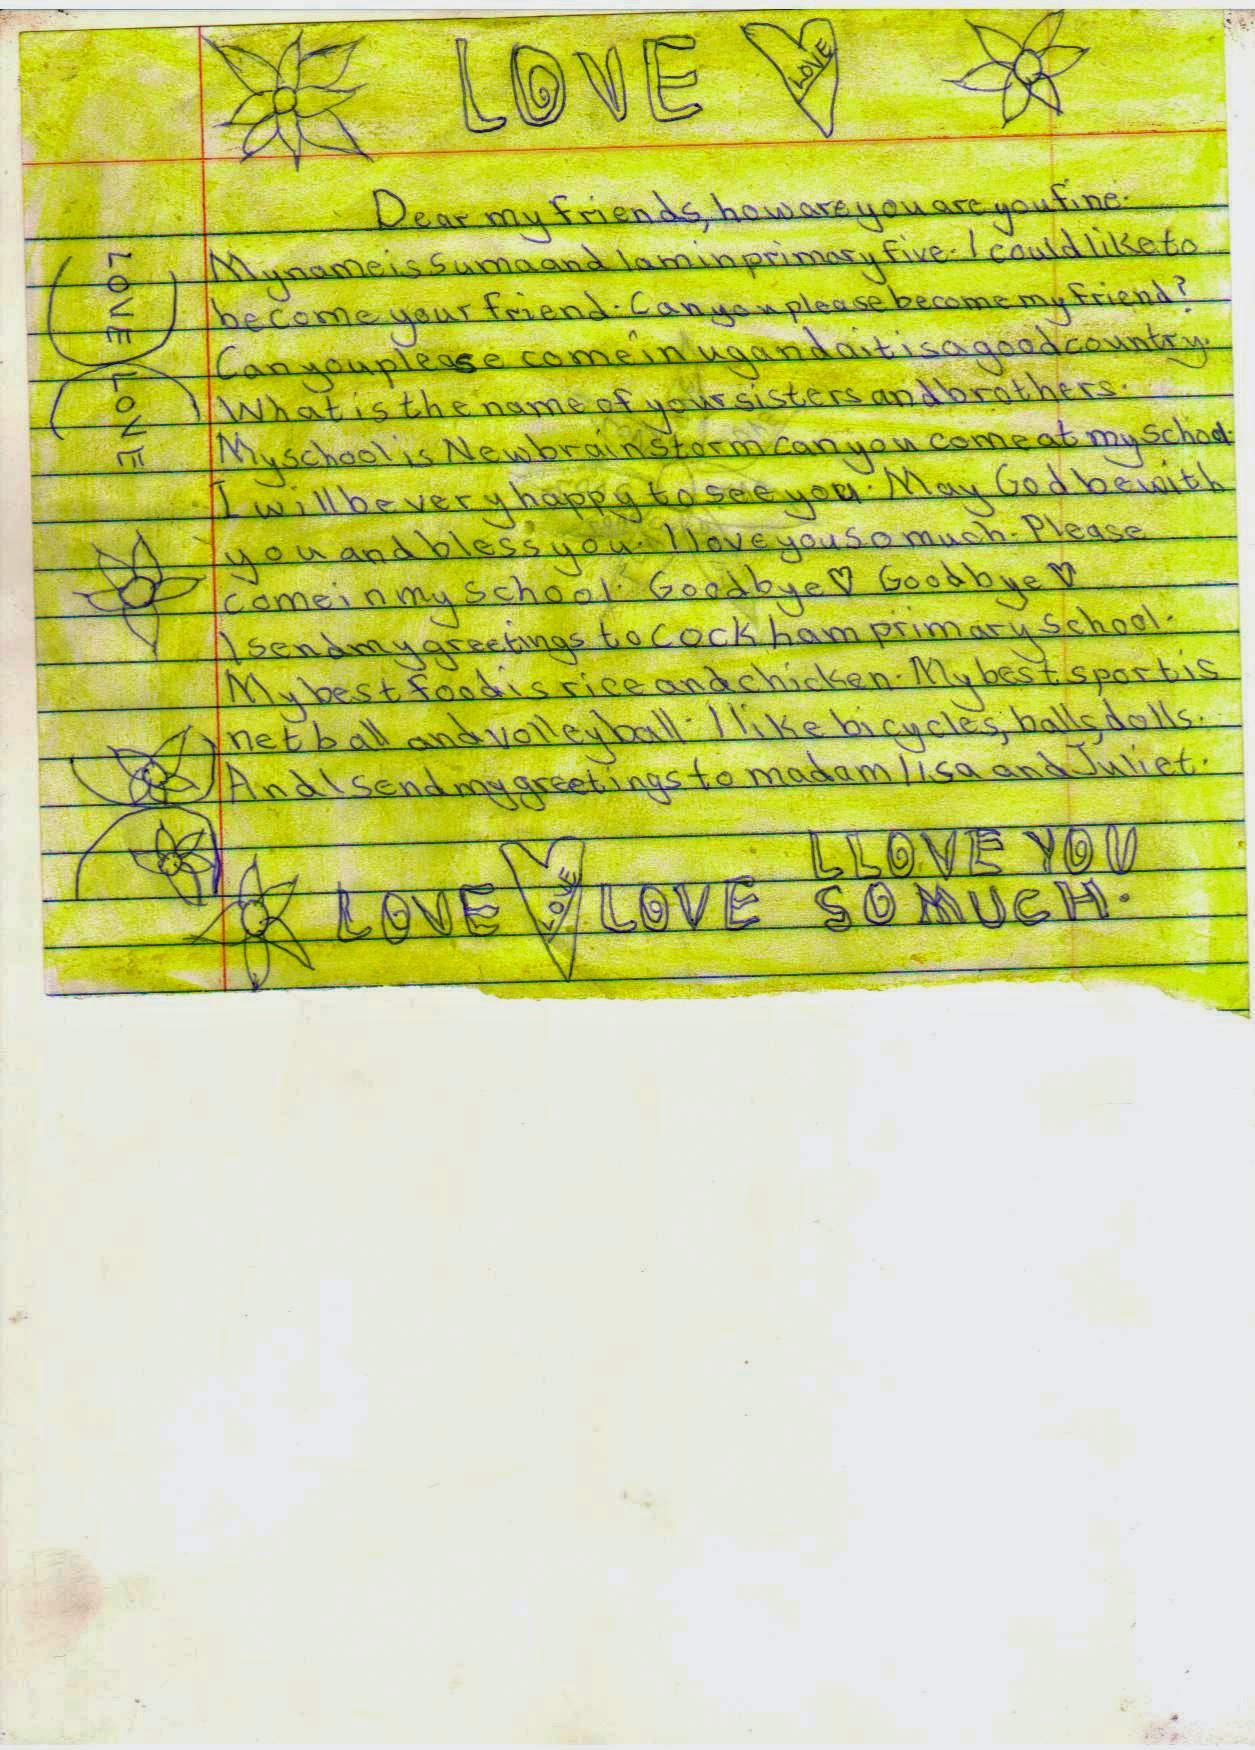 LOVE LOVE
Dear my friends, how are you are you fine.
My name is Suma and I am in primary five. I could like to
become your friend. Can you please become my friend?
Can you please come in uganda it is a good country.
What is the name of your sisters and brothers.
My school is New brainstorm can you come at my school.
I will be very happy to see you. May God be with
you and bless you. I love you so much. Please
come in my school. Goodbye♡ Goodbye♡
I send my greetings to Cockham primary school.
My best food is rice and chicken. My best sport is
netball and volleyball. I like bicycles, balls, dolls.
And I send my greetings to madam lisa and Juliet.
LOVE
LOVE
LLOVE YOU
LOVE LOVE LOVE SO MUCH.